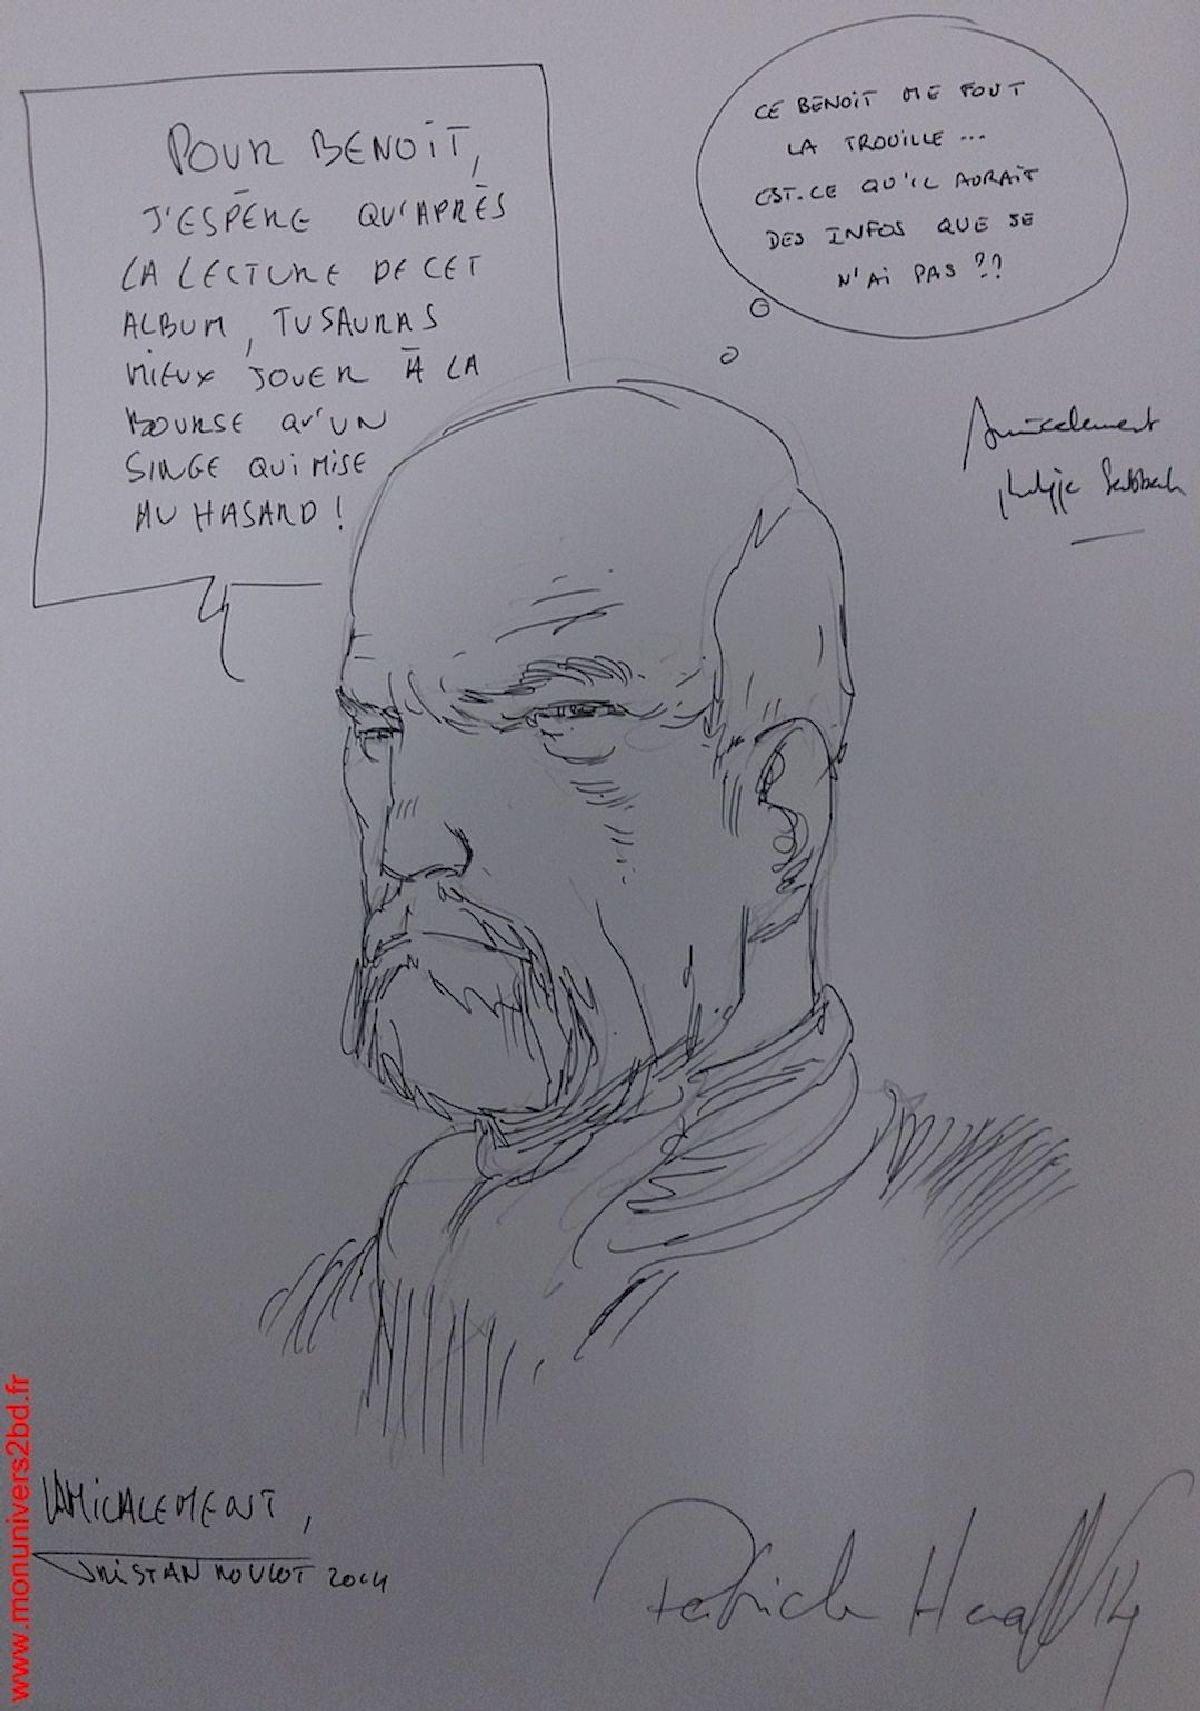 POUR BENOIT,
J'ESPÈRE QU'APRÈS
LA LECTURE DE CET
ALBUM, TU SAURAS
MIEUX JOUER À LA
BOURSE QU'UN
SINGE QUI MISE
AU HASARD !
CE BENOIT ME FOUT
LA TROUILLE ...
EST-CE QU'IL AURAIT
DES INFOS QUE JE
N'AI PAS ??
Amicalement
Philippe
AMICALEMENT,
TRISTAN ROULOT 2014
Patrick 14
www.monunivers2bd.fr